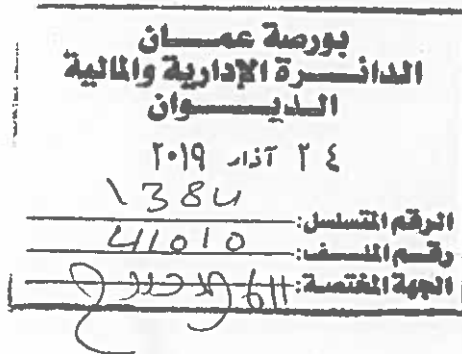 بورصة عمـــان
الدائـــرة الإدارية والمالية
الديـــــوان
٢٤ آذار ٢٠١٩
الرقم المتسلسل:
رقم الملف: 41010
الجهة المختصة: